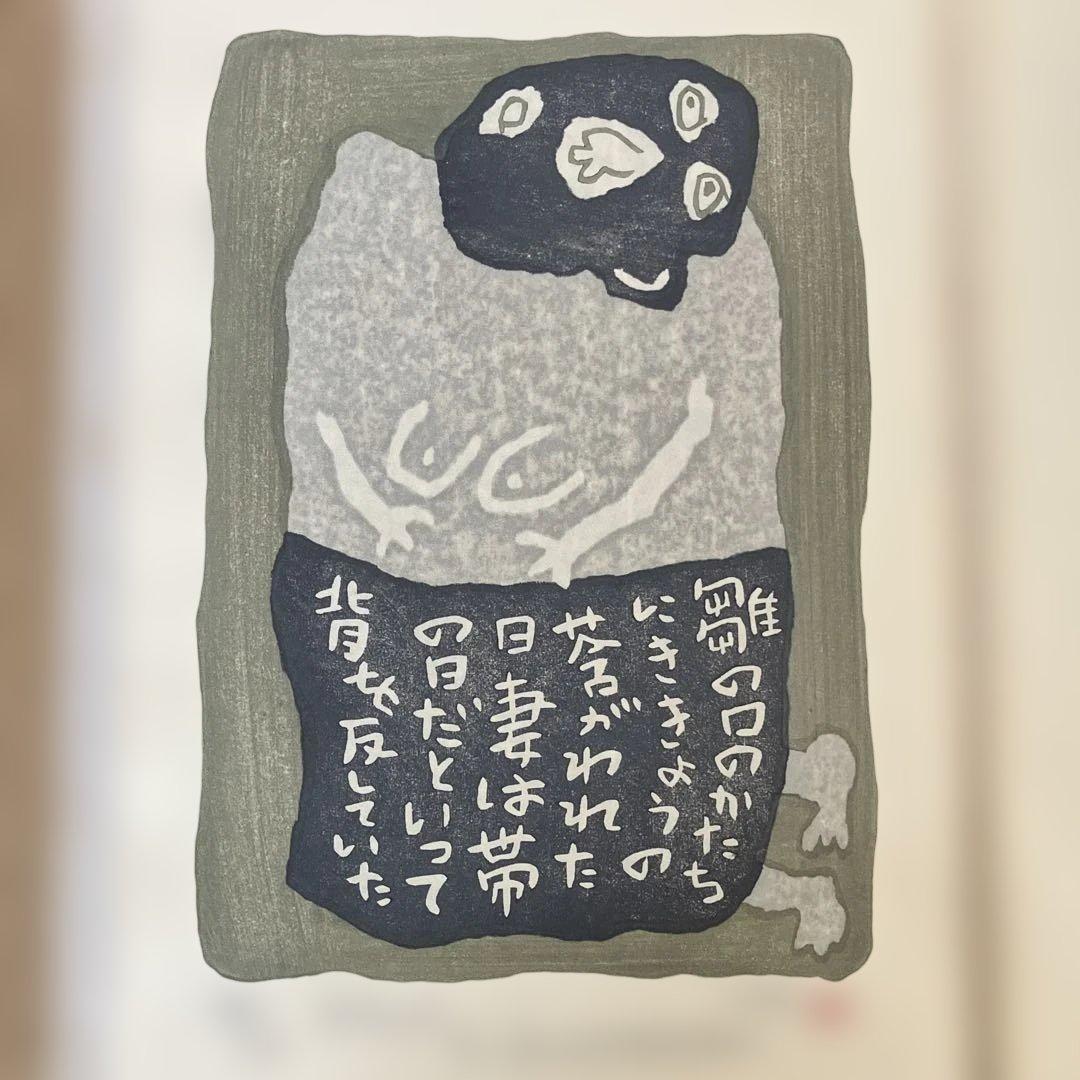 雛の口のかたち
にききょうの
莟がわれた
日妻は帯
の日だといって
背を反していた